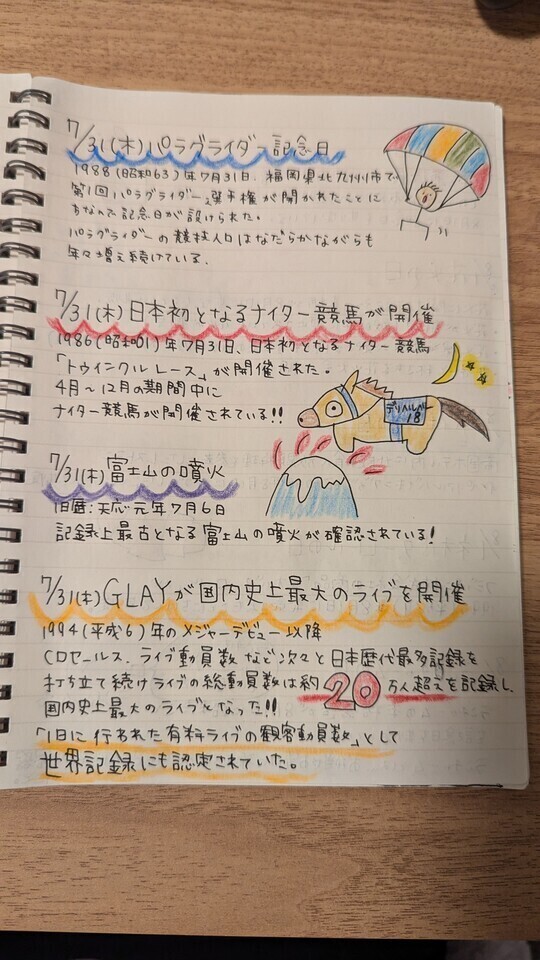 7/31(木)パラグライダー記念日
1988(昭和63)年7月31日、福岡県北九州市で
第1回パラグライダー選手権が開かれたことに
ちなんで記念日が設けられた。
パラグライダーの競技人口はなだらかながらも
年々増え続けている。
7/31(木)日本初となるナイター競馬が開催
1986(昭和61)年7月31日、日本初となるナイター競馬
「トゥインクルレース」が開催された。
4月～12月の期間中に
ナイター競馬が開催されている!!
18
7/31(木)富士山の噴火
旧暦:天応元年7月6日
記録上最古となる富士山の噴火が確認されている!
7/31(木)GLAYが国内史上最大のライブを開催
1994(平成6)年のメジャーデビュー以降
CDセールス、ライブ動員数など次々と日本歴代最多記録を
打ち立て続けライブの総動員数は約20万人超えを記録し、
国内史上最大のライブとなった!!
「1日に行われた有料ライブの観客動員数」として
世界記録にも認定されていた。